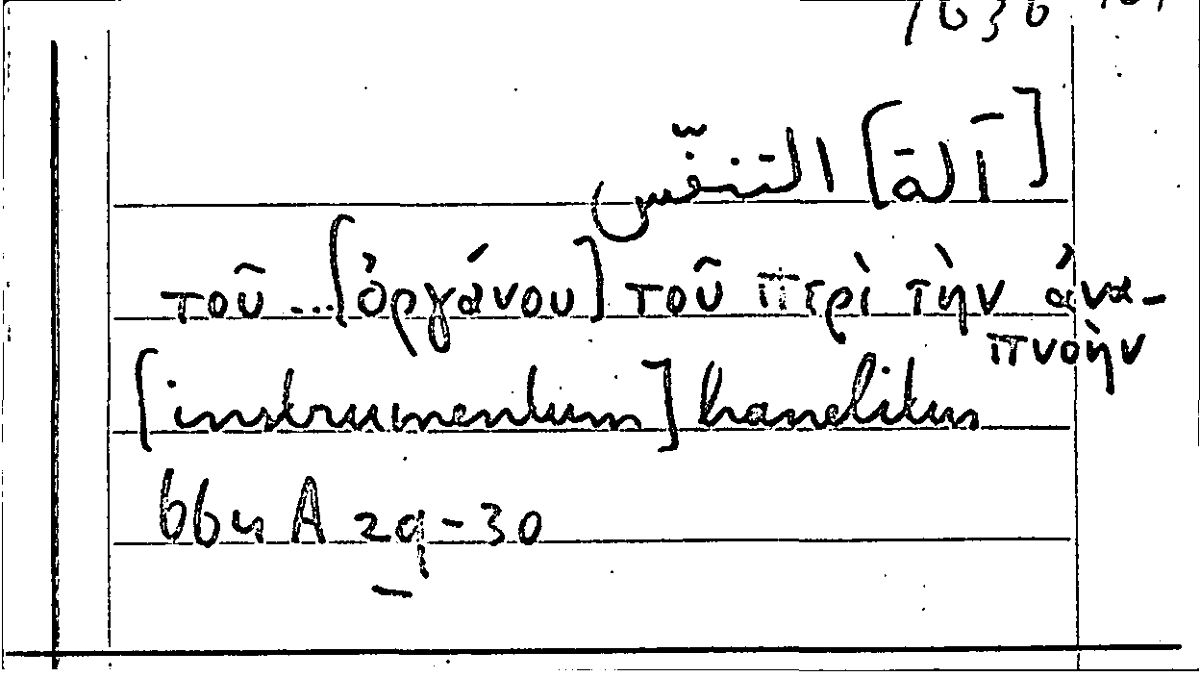 [آلة] التنفّس
τοῦ ...[ὀργάνου] τοῦ περὶ τὴν ἀνα-
πνοὴν
[instrumentum] hanelitus
664 A 29-30